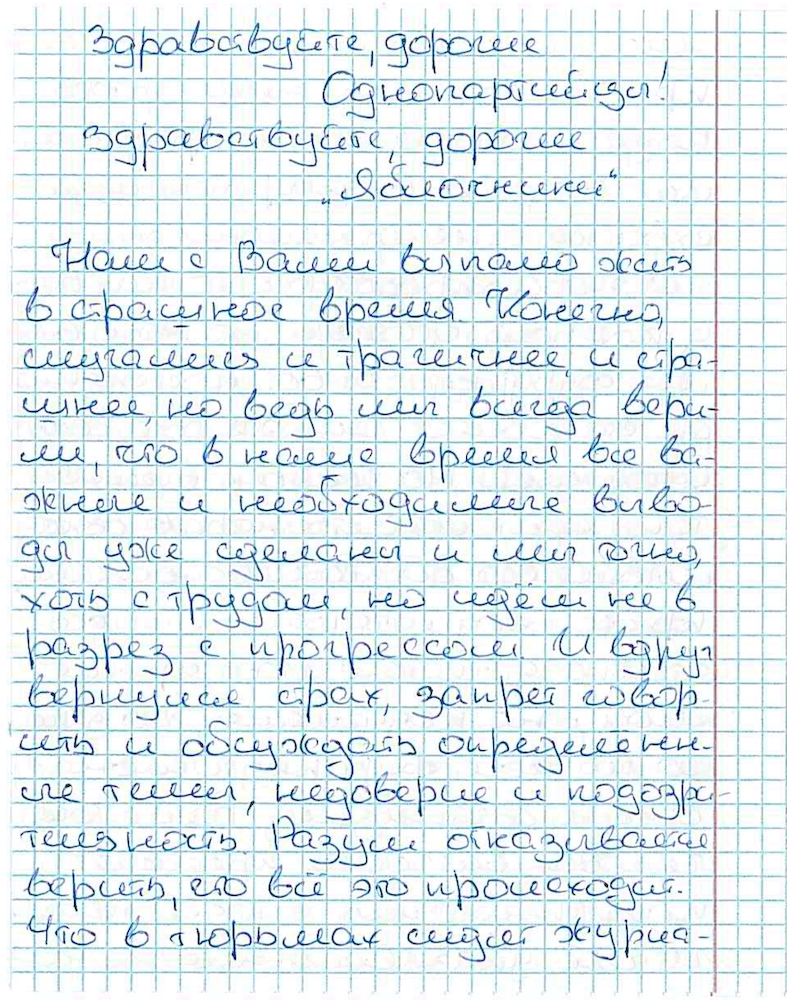 Здравствуйте, дорогие
Однопартийцы!
Здравствуйте, дорогие
„Яблочники“
Нам с Вами выпало жить
в страшное время. Конечно,
случалися и трагичнее, и стра-
шнее, но ведь мы всегда вери-
ли, что в наше время все ва-
жные и необходимые выво-
ды уже сделаны и мы точно,
хоть с трудом, но идём не в
разрез с прогрессом. И вдруг
вернулся страх, запрет говор-
ить и обсуждать определенн-
ые темы, недоверие и подозри-
тельность. Разум отказывается
верить, что всё это происходит.
Что в тюрьмах сидят журна-